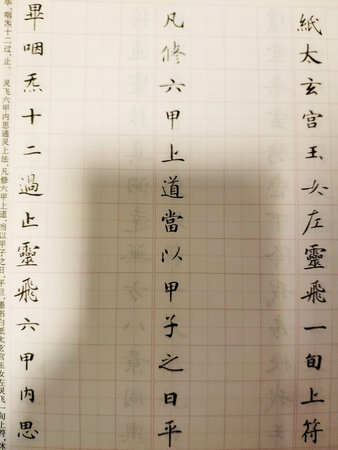 毕，咽炁十二过，止。 灵飞六甲内思通灵上法，凡修六甲上道，当以甲子之日，平旦，墨书白纸太玄宫玉女左灵飞一旬上符，沐
畢咽炁十二過止靈飛六甲内思
凡修六甲上道當以甲子之日平
紙太玄宫玉女左靈飛一旬上符